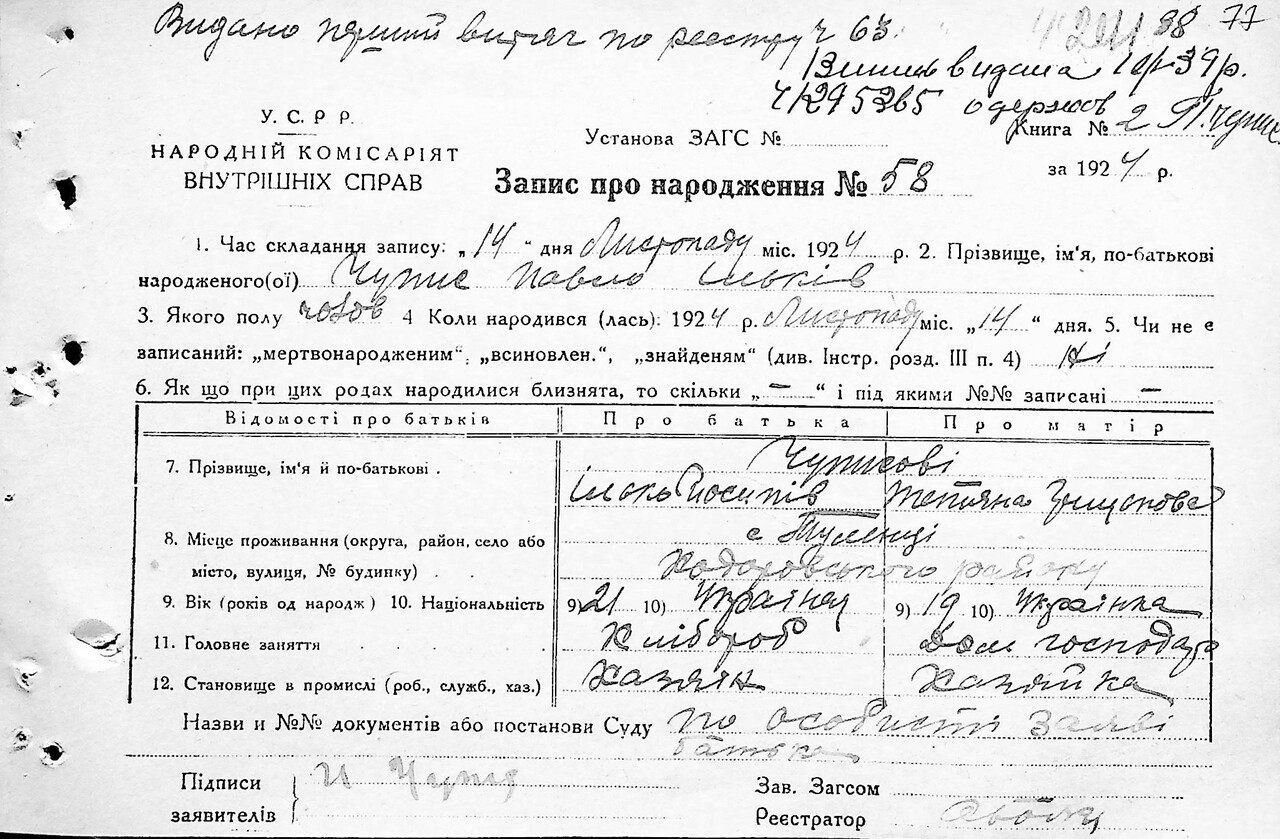 Видано перший витяг по реєстру ч 63.
98 77
видана 39р.
41295365 одержав
У. С. Р Р.
НАРОДНІЙ КОМІСАРІЯТ
ВНУТРІШНІХ СПРАВ
Установа ЗАГС №
Книга № 2
за 1924 р.
Запис про народження № 58
1. Час складання запису: „14" дня Листопаду міс. 1924 р. 2. Прізвище, ім'я, по-батькові
народженого(ої) Чупис Павло Ільків
3. Якого полу чолов 4 Коли народився (лась): 1924 р. Листопаду міс. „14" дня. 5. Чи не є
записаний: „мертвонародженим", „всиновлен.", „знайденям" (див. Інстр. розд. III п. 4) Ні
6. Як що при цих родах народилися близнята, то скільки „—" і під якими №№ записані —
Відомості про батьків Про батька Про матір
7. Прізвище, ім'я й по-батькові . Чуписові
Ілько Йосипів Тетяна Грицькова
8. Місце проживання (округа, район, село або с Тулинці
місто, вулиця, № будинку) . . Ходоровського району
9. Вік (років од народж) 10. Національність 9) 21 10) Українец 9) 19 10) Українка
11. Головне заняття . . . . Хлібороб Дом господар
12. Становище в промислі (роб., служб., хаз.) Хазяїн Хазяйка
Назви и №№ документів або постанови Суду по особисті заяві
батька
Підписи
заявителів
И Чупис
Зав. Загсом
Реєстратор